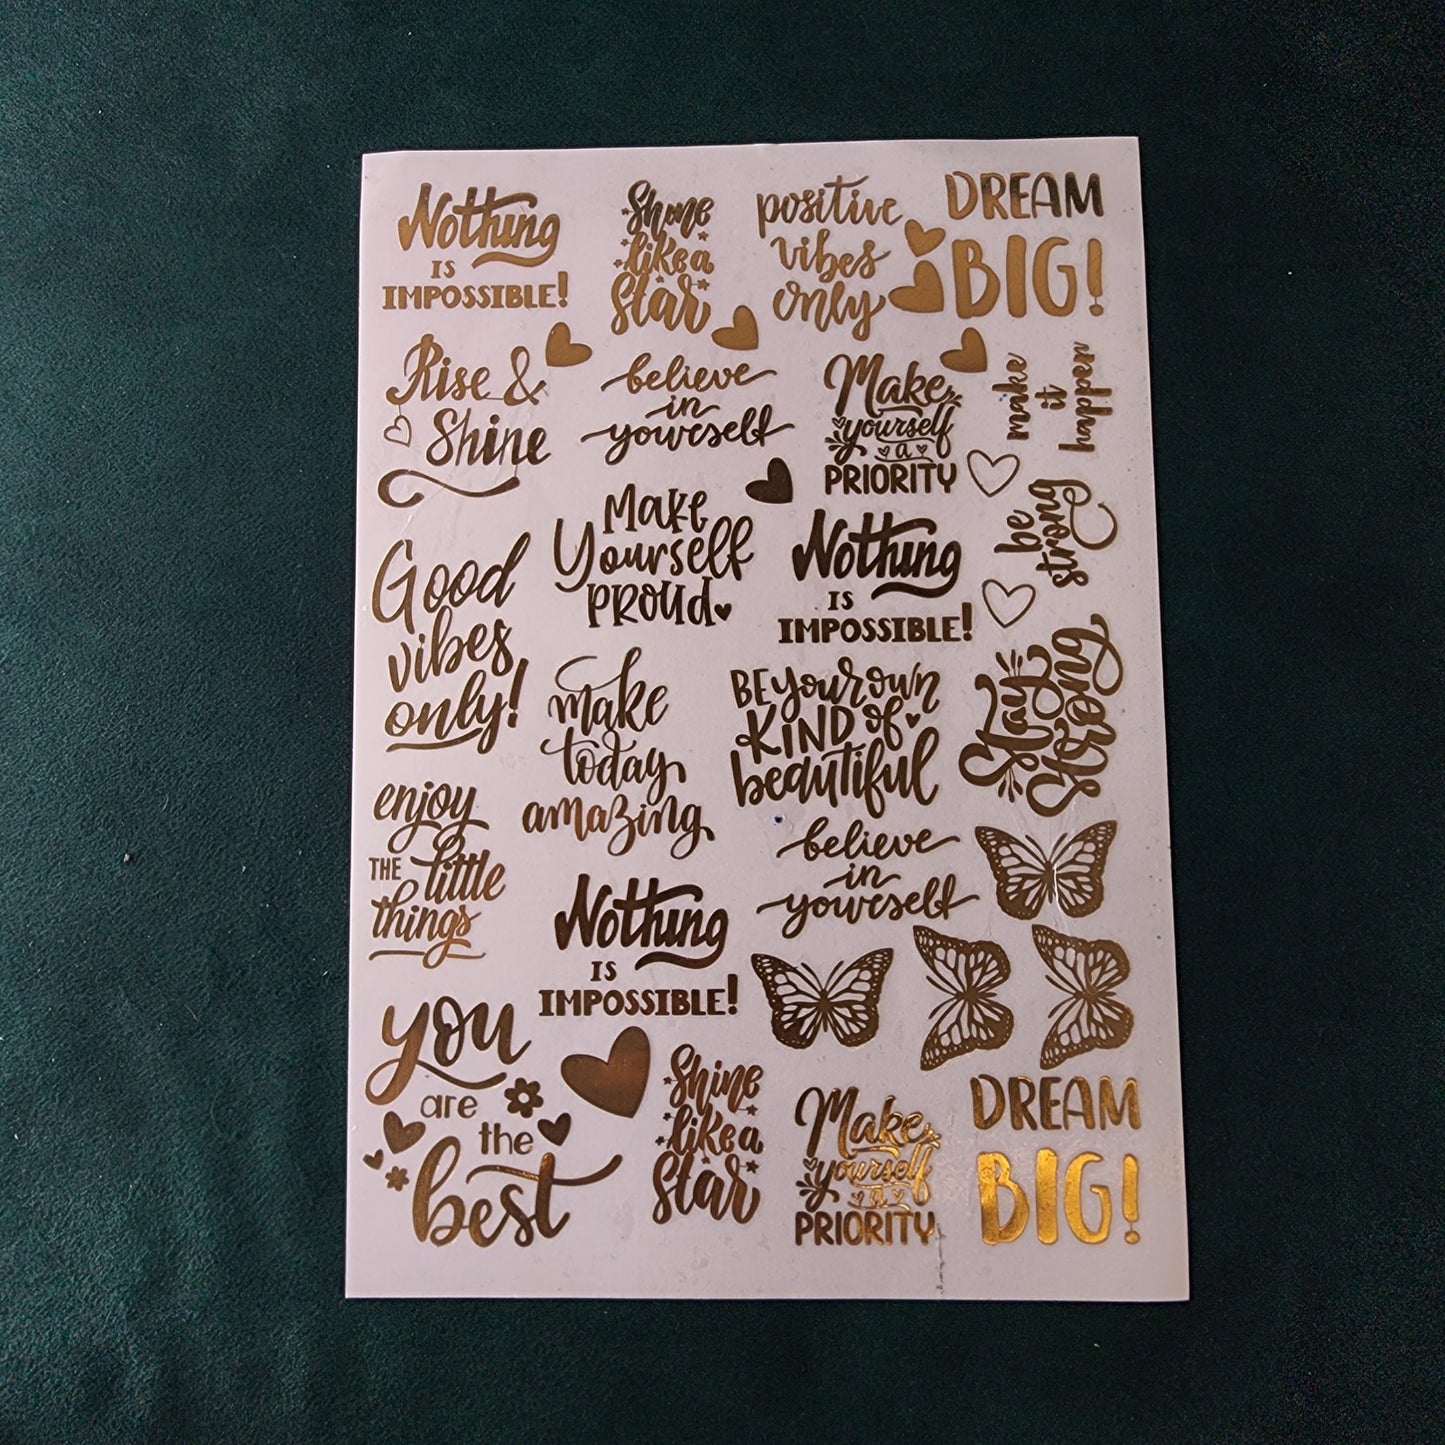 Nothing
IS
IMPOSSIBLE!
Shine
like a
Star
positive
vibes
only
DREAM
BIG!
Rise &
Shine
believe
in
yourself
Make
yourself
a
PRIORITY
make
it
happen
Make
Yourself
PROUD
Nothing
IS
IMPOSSIBLE!
be
strong
Good
vibes
only!
make
today
amazing
BE your own
KIND of
beautiful
Stay
Strong
enjoy
THE little
things
believe
in
yourself
Nothing
IS
IMPOSSIBLE!
you
are
the
best
Shine
like a
Star
Make
yourself
a
PRIORITY
DREAM
BIG!